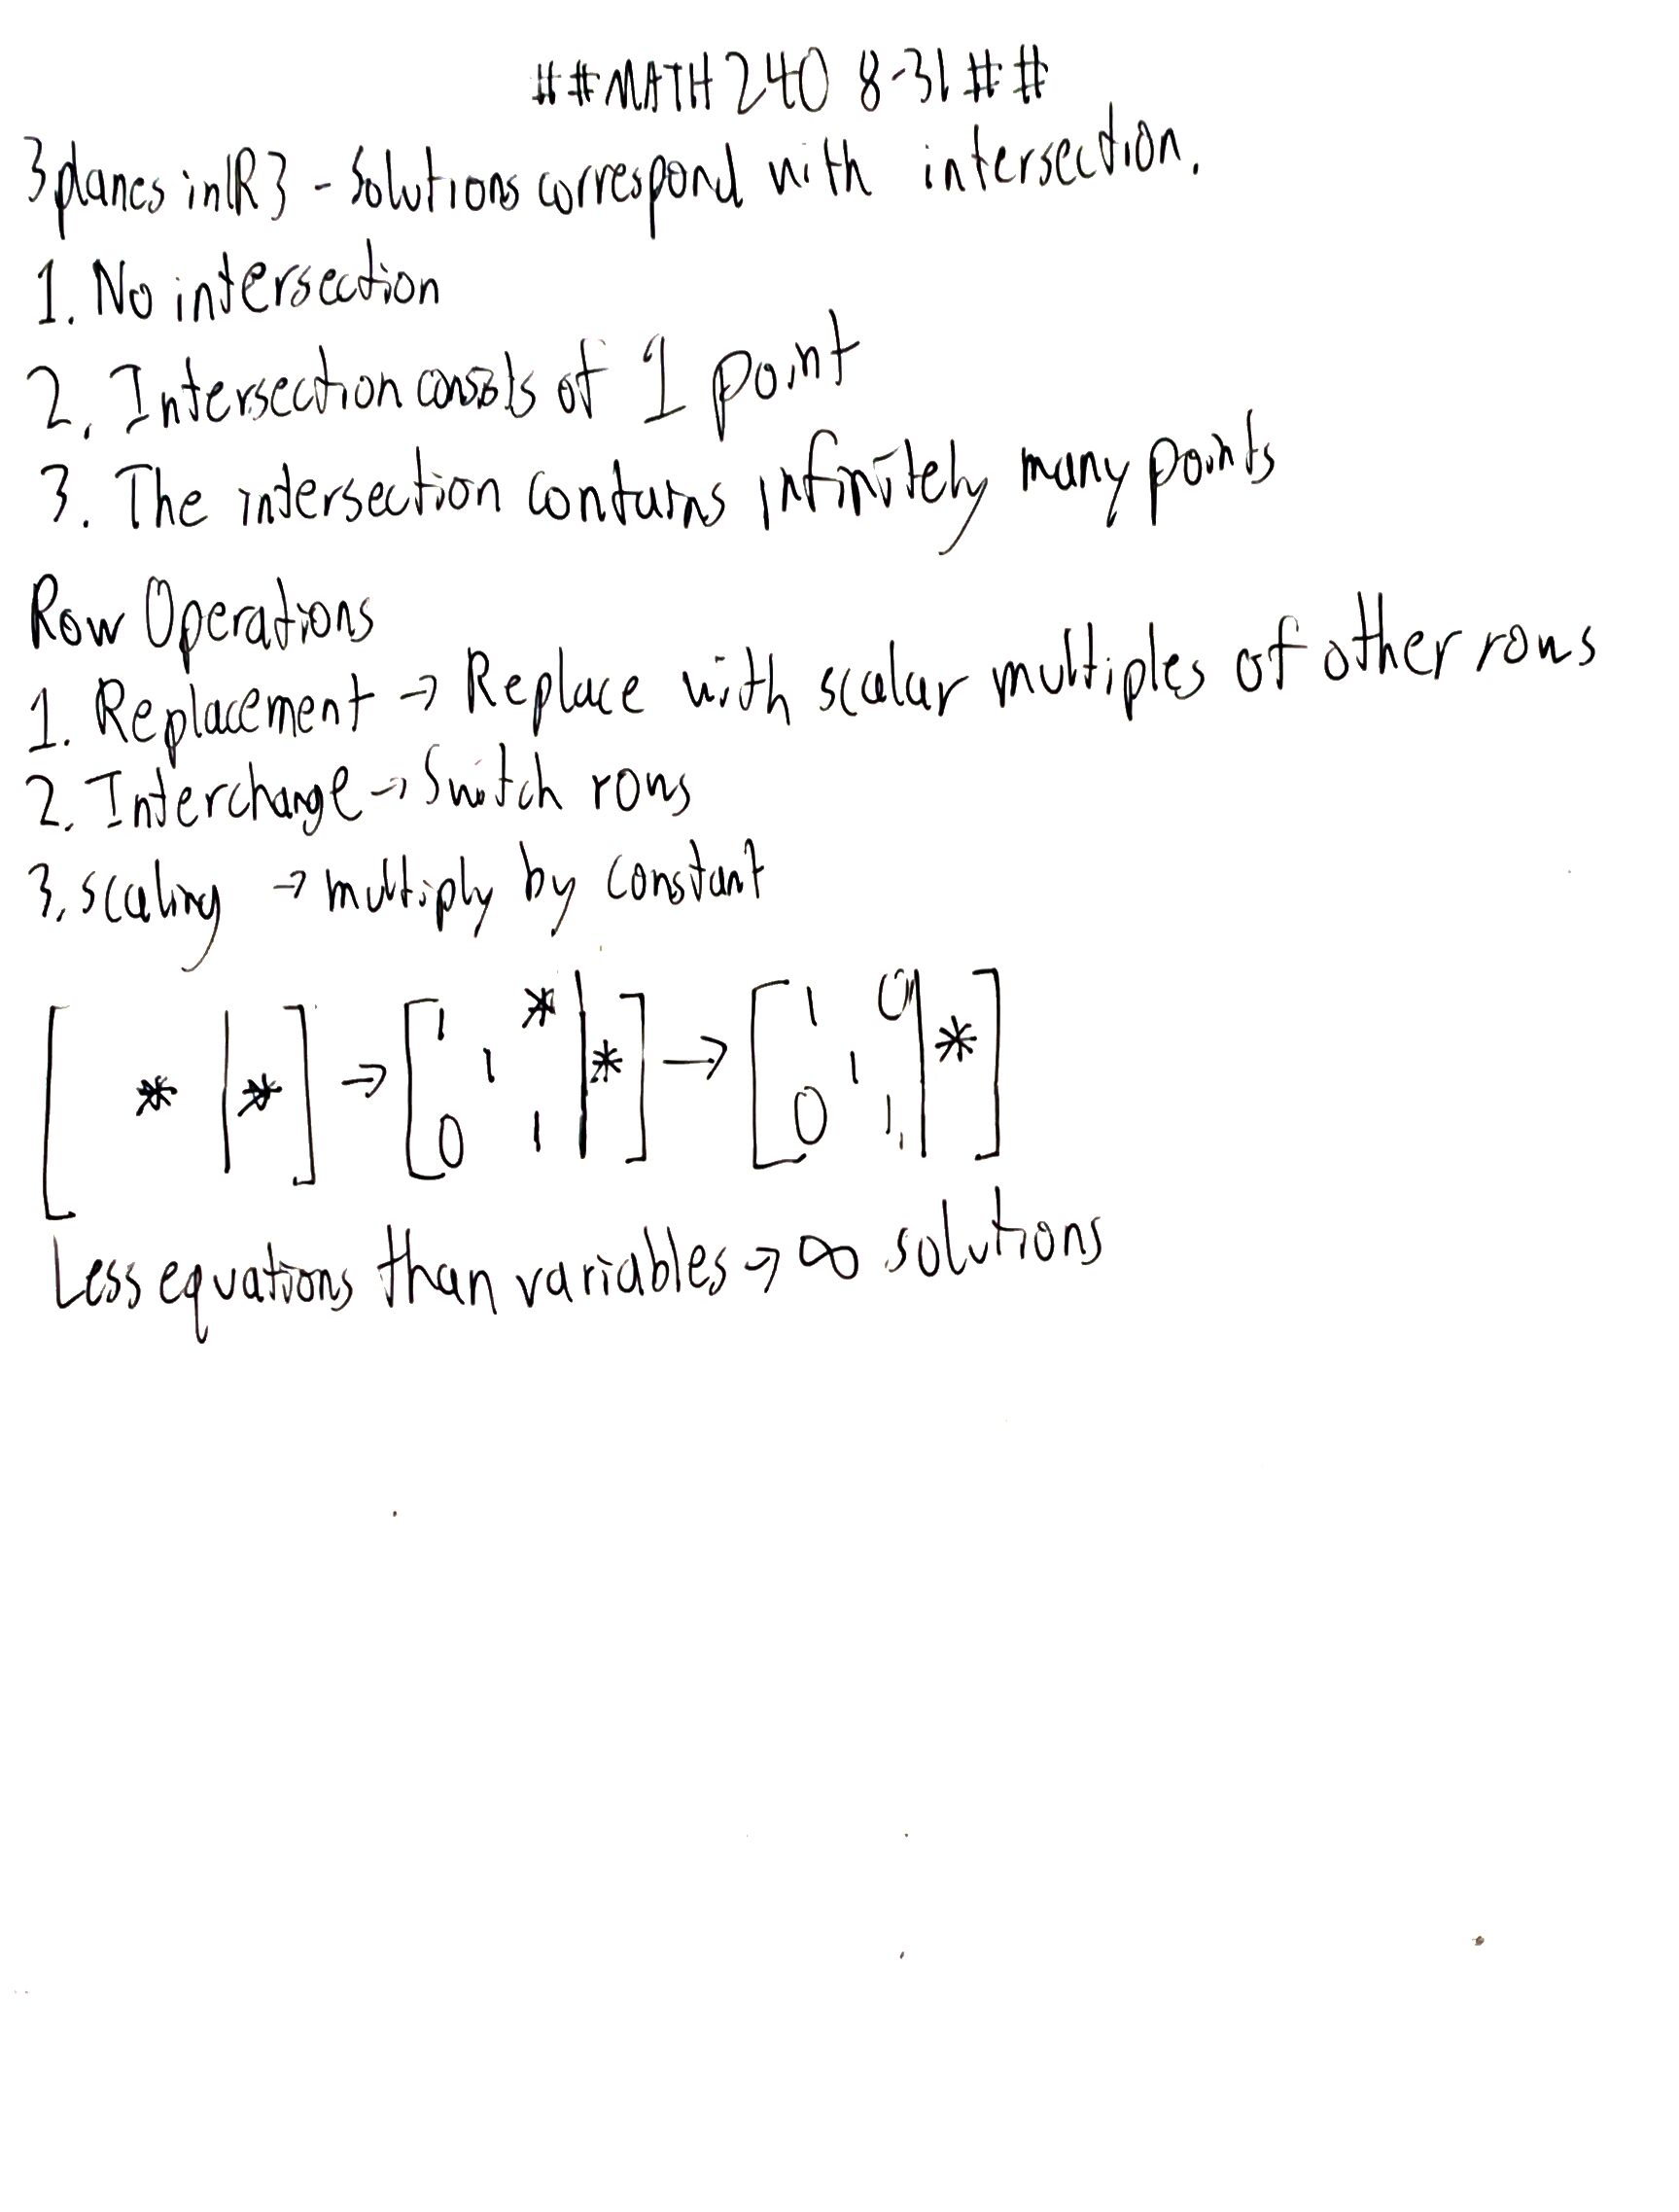 ##MATH 240 8-31##
3 planes in ℝ3 - Solutions correspond with intersection.
1. No intersection
2. Intersection consists of 1 point
3. The intersection contains infinitely many points
Row Operations
1. Replacement → Replace with scalar multiples of other rows
2. Interchange → Switch rows
3. scaling → multiply by constant
[ * | * ] → [ 1 * 1 0 1 | * ] → [ 1 0 1 0 1 | * ]
Less equations than variables → ∞ solutions